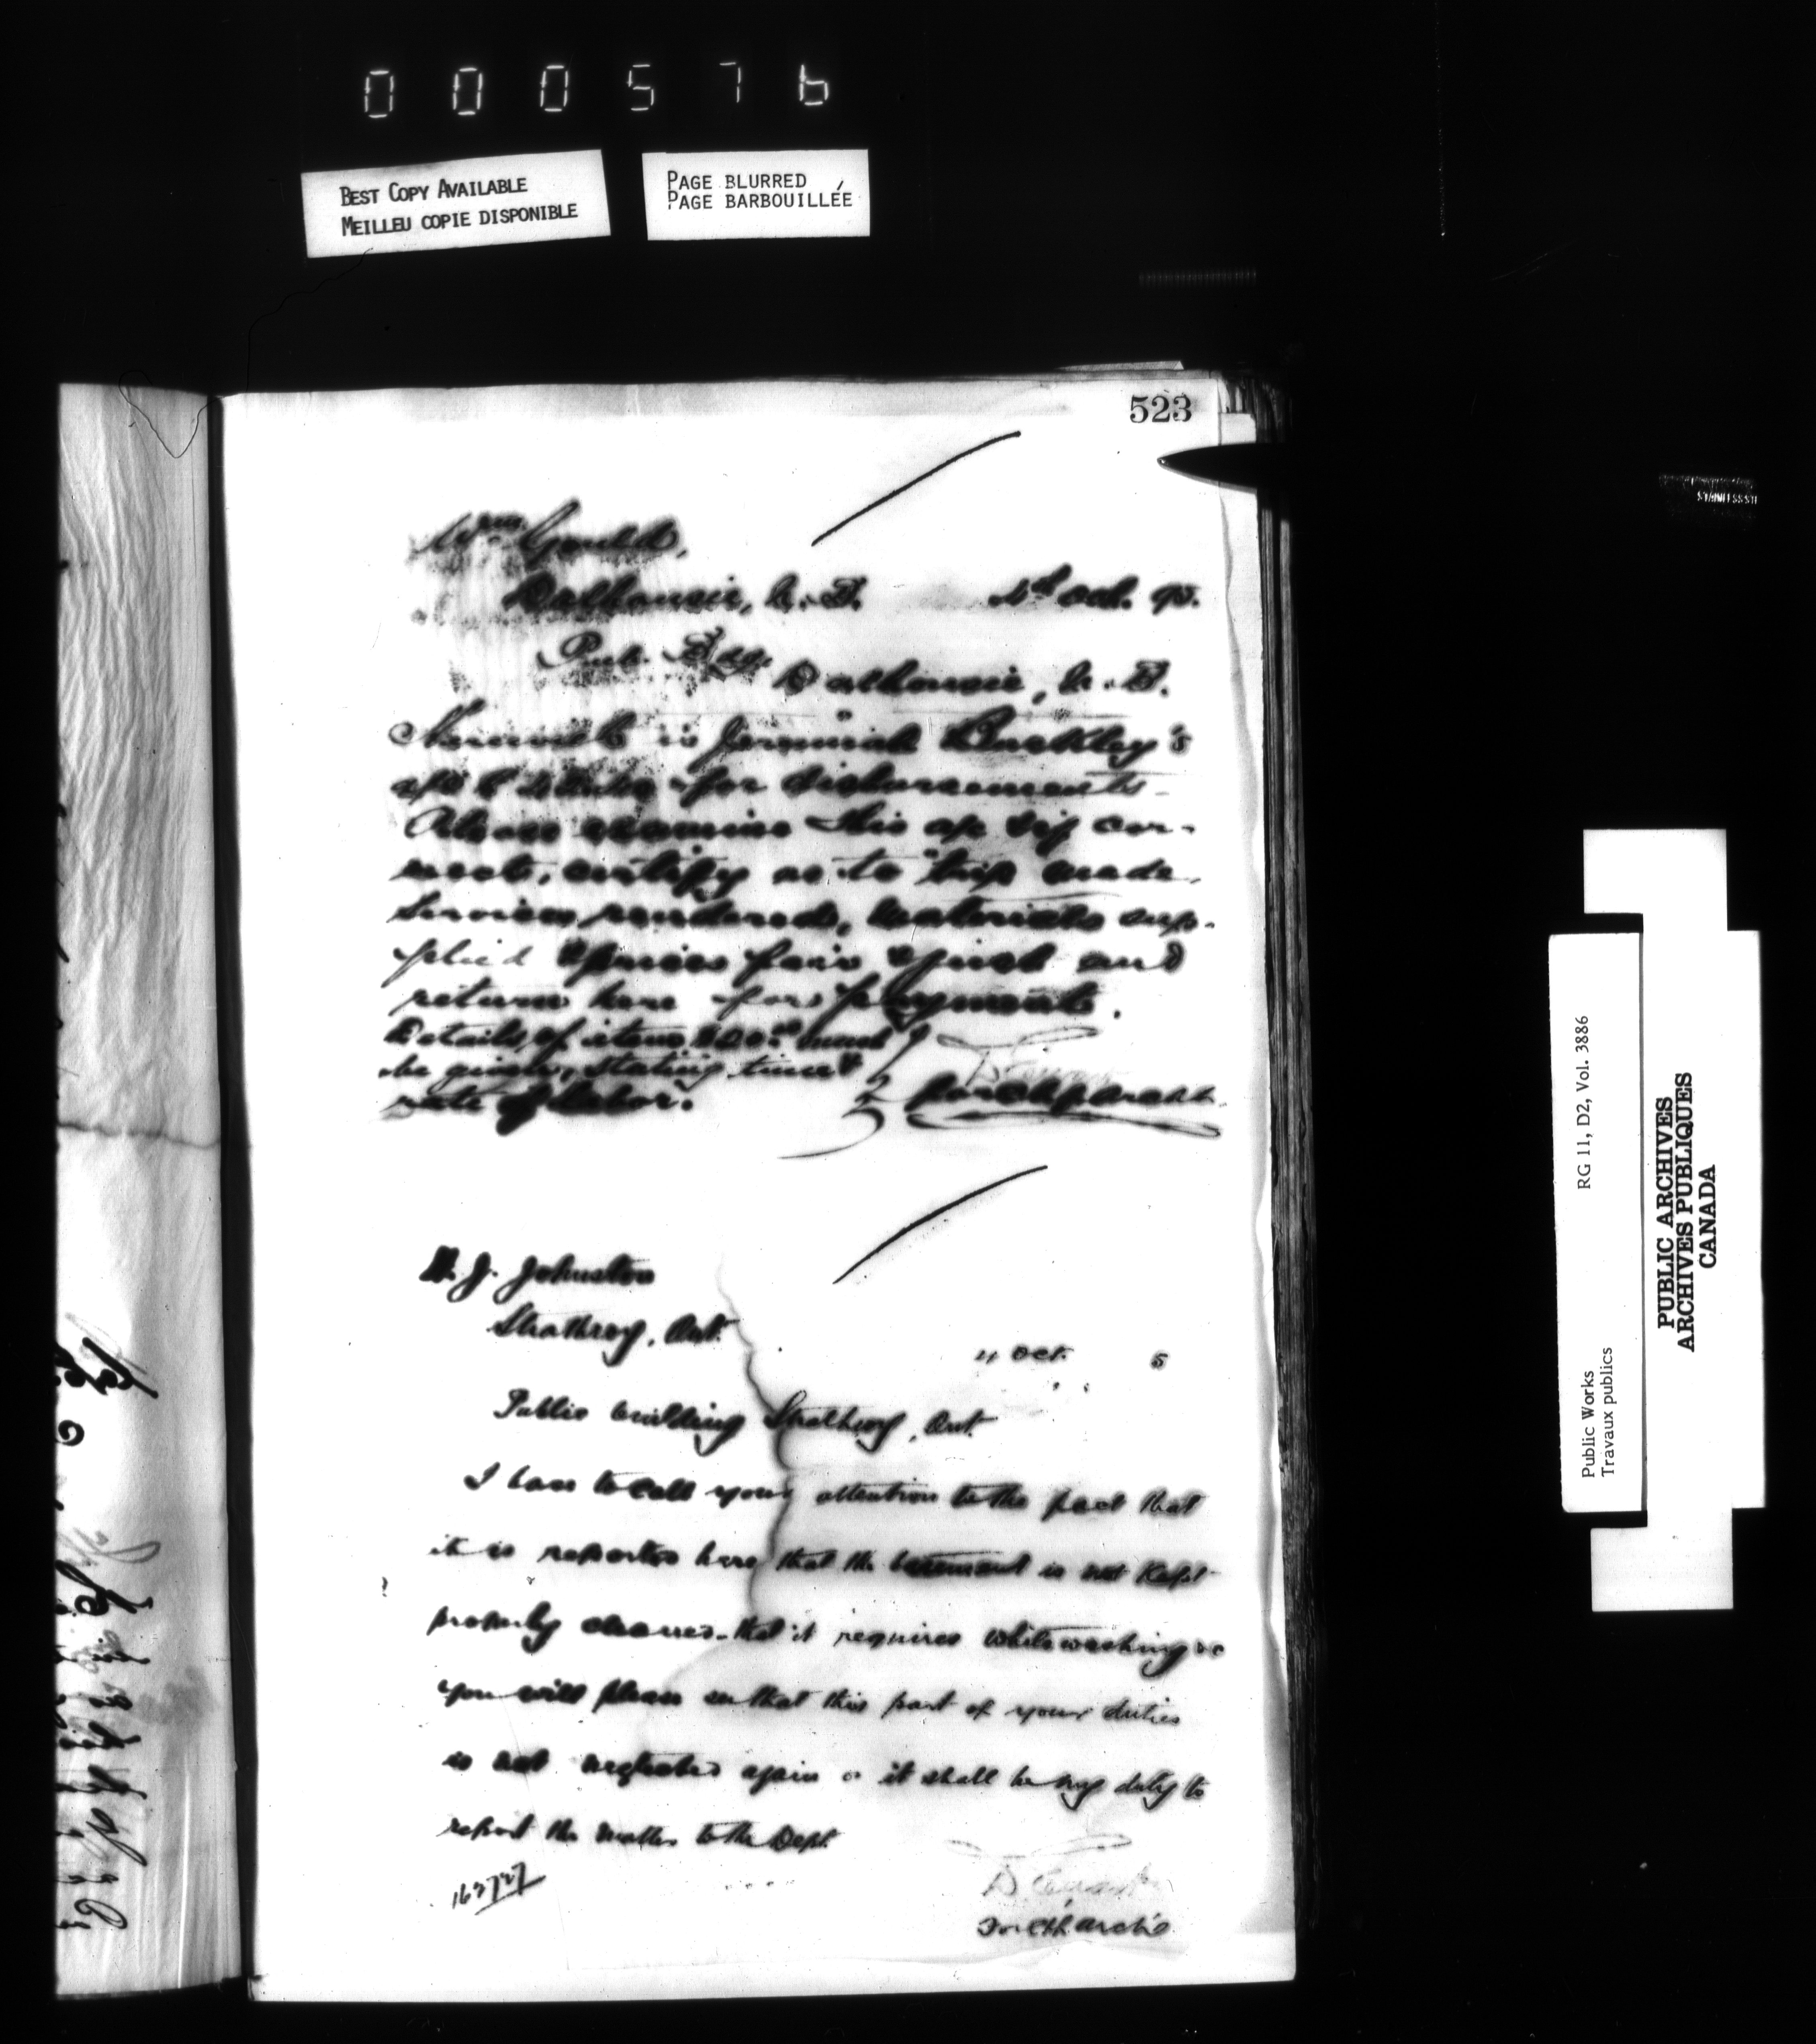 000576
BEST COPY AVAILABLE
MEILLEU COPIE DISPONIBLE
PAGE BLURRED
PAGE BARBOUILLÉE
523
Wm. Gould,
Dalhousie, N.B. Oct. 95.
Pub. Bdg. Dalhousie, N.B.
Herewith is Jeremiah Buckley's
for disbursements
Please examine this a/c & if cor-
rect, certify as to trip made,
Services rendered, materials sup-
plied & prices fair & just and
return here for payment.
Details of item must
be given, stating time &
rate of labor.
for Ch. Archt.
J. Johnston
Strathroy, Ont.
Oct. 5
Public building Strathroy, Ont.
I have to call your attention to the fact that
it is reported here that the basement is not kept
properly cleaned - that it requires whitewashing &c
you will please see that this part of your duties
is not neglected again or it shall be my duty to
report the matter to the Dept.
163727
D. Ewart
for Ch. Archt.
Public Works
Travaux publics
RG 11, D2, Vol. 3886
PUBLIC ARCHIVES
ARCHIVES PUBLIQUES
CANADA